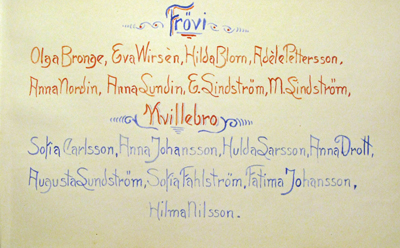 Frövi
Olga Bronge, Eva Wirsèn, Hilda Blom, Adèle Pettersson,
Anna Nordin, Anna Sundin, E. Lindström, M. Lindström,
Kvillebro
Sofia Carlsson, Anna Johansson, Hulda Larsson, Anna Drott,
Augusta Sundström, Sofia Fahlström, Fatima Johansson,
Hilma Nilsson.